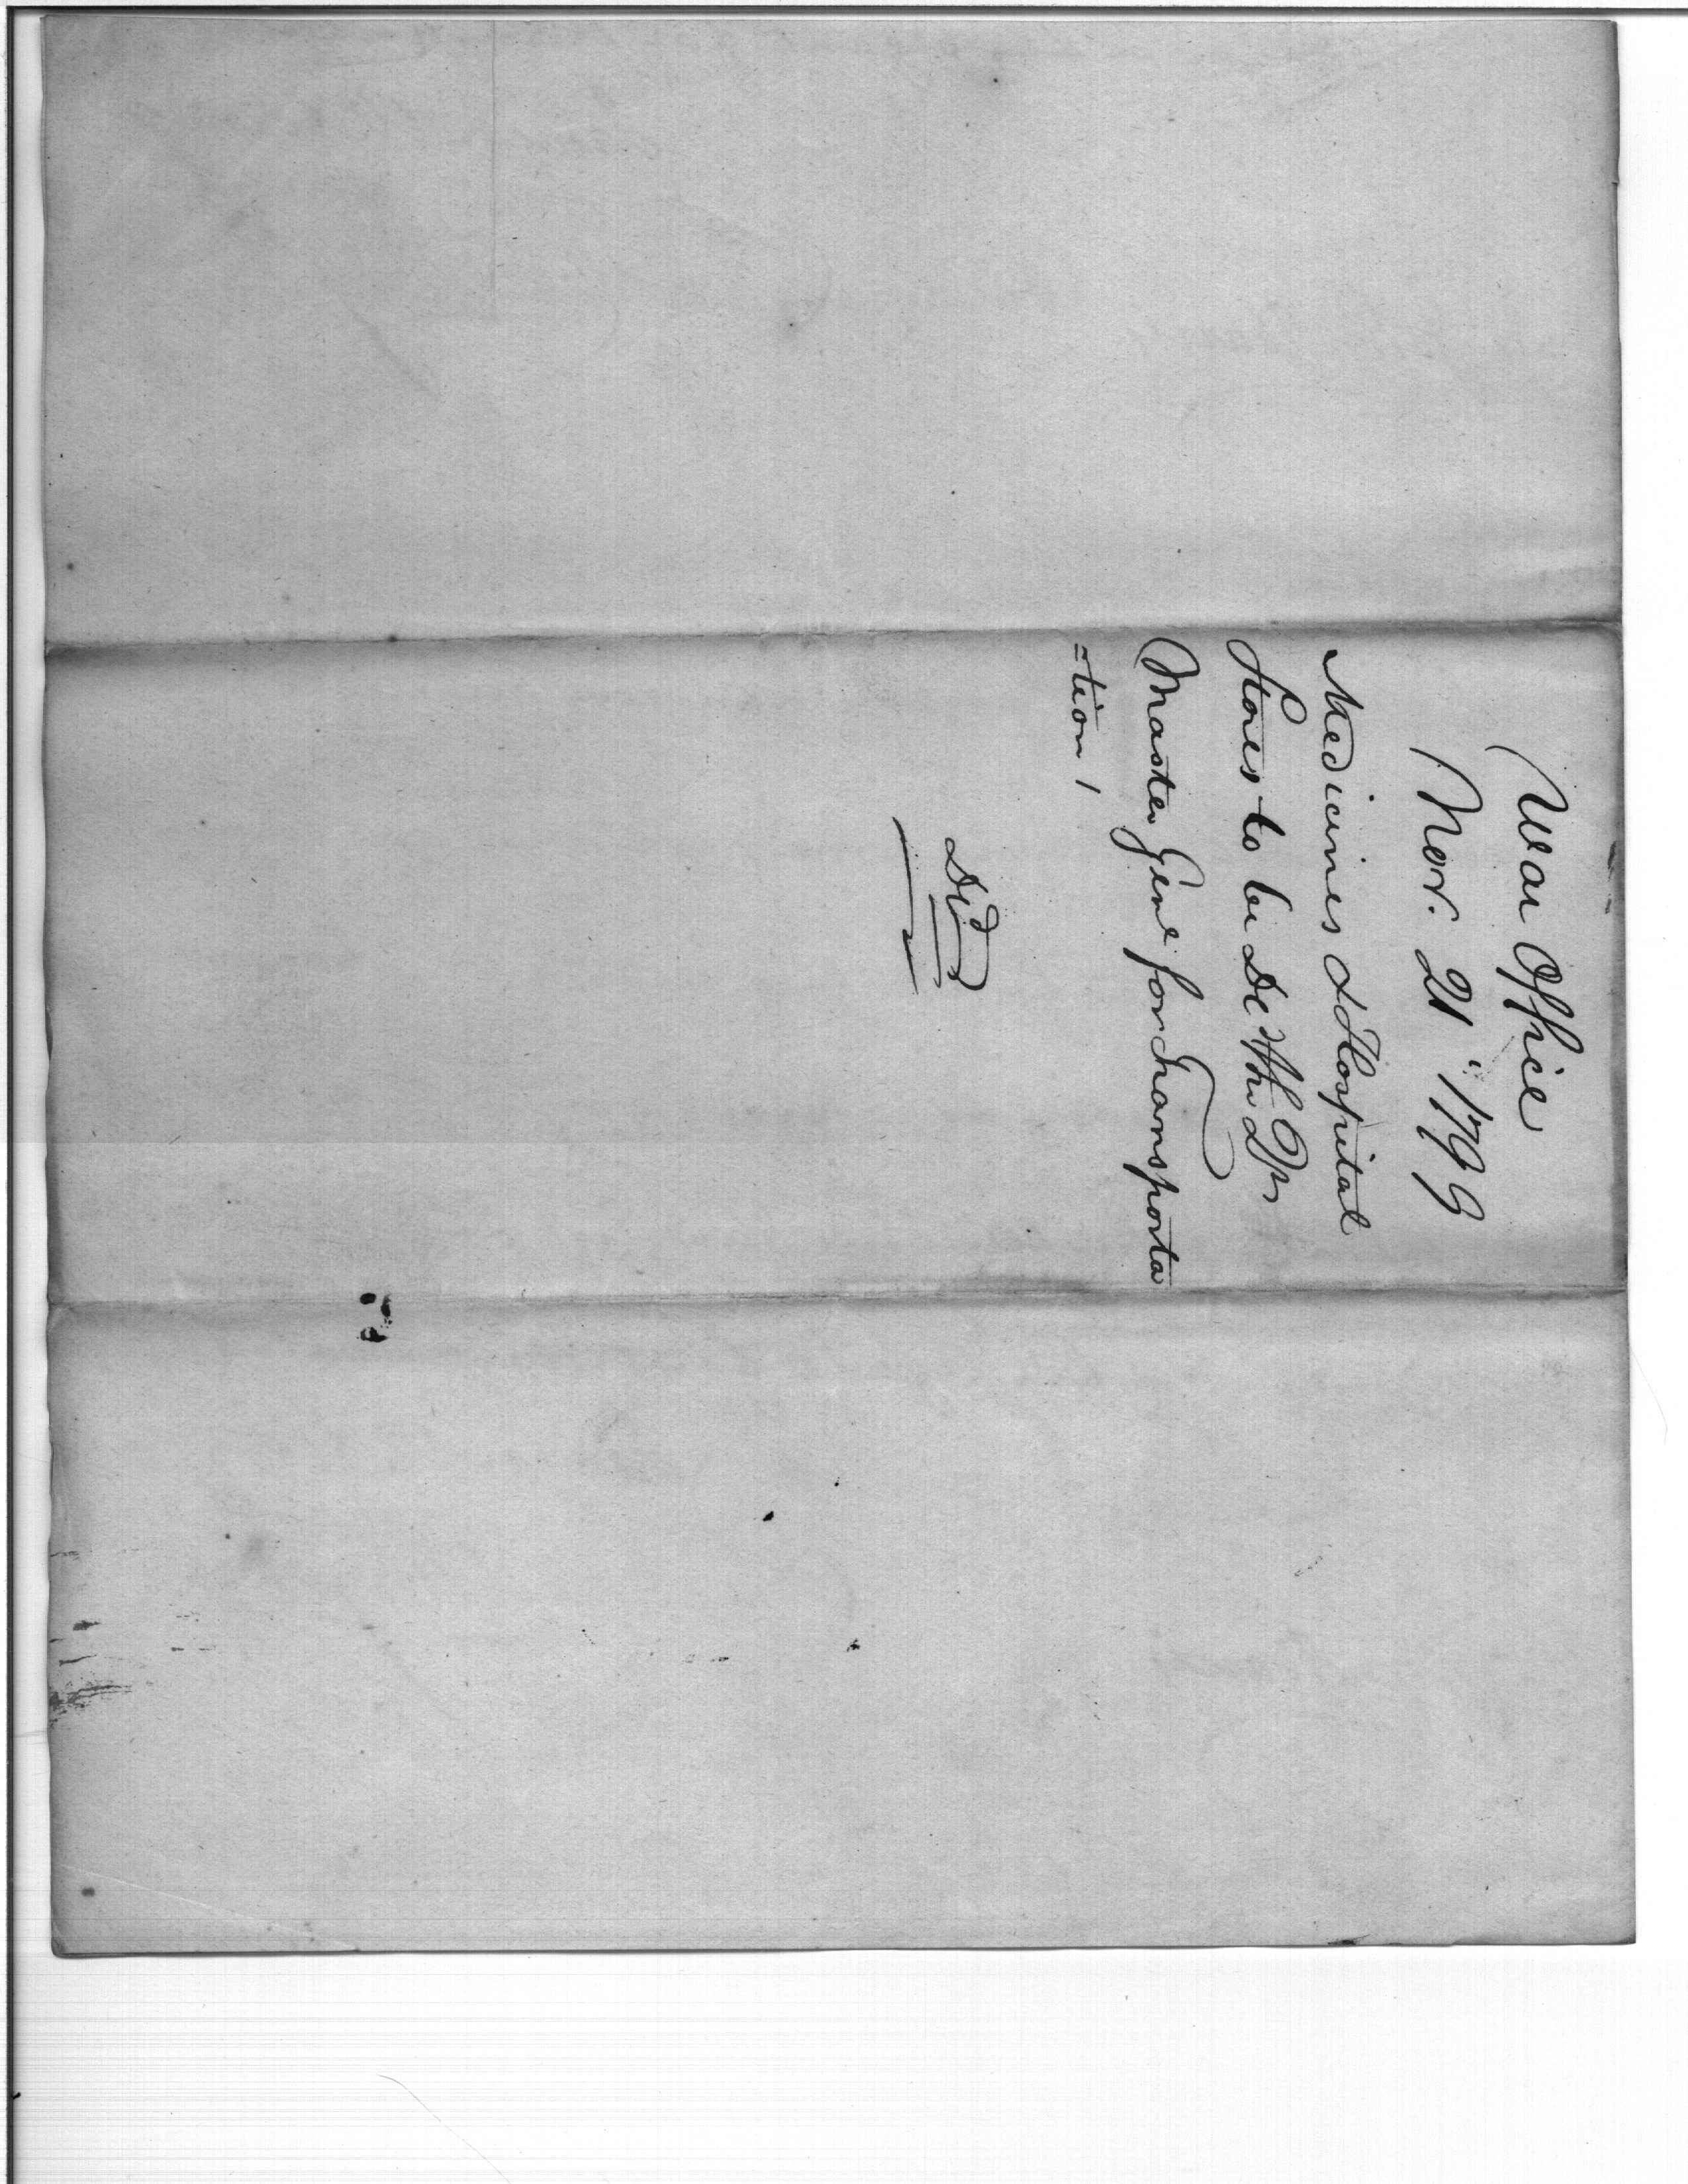 War Office
Nov. 21 1799
Medicines & Hospital
Stores to be Dd the Qr
Master Genl for transporta
=tion /
Dd